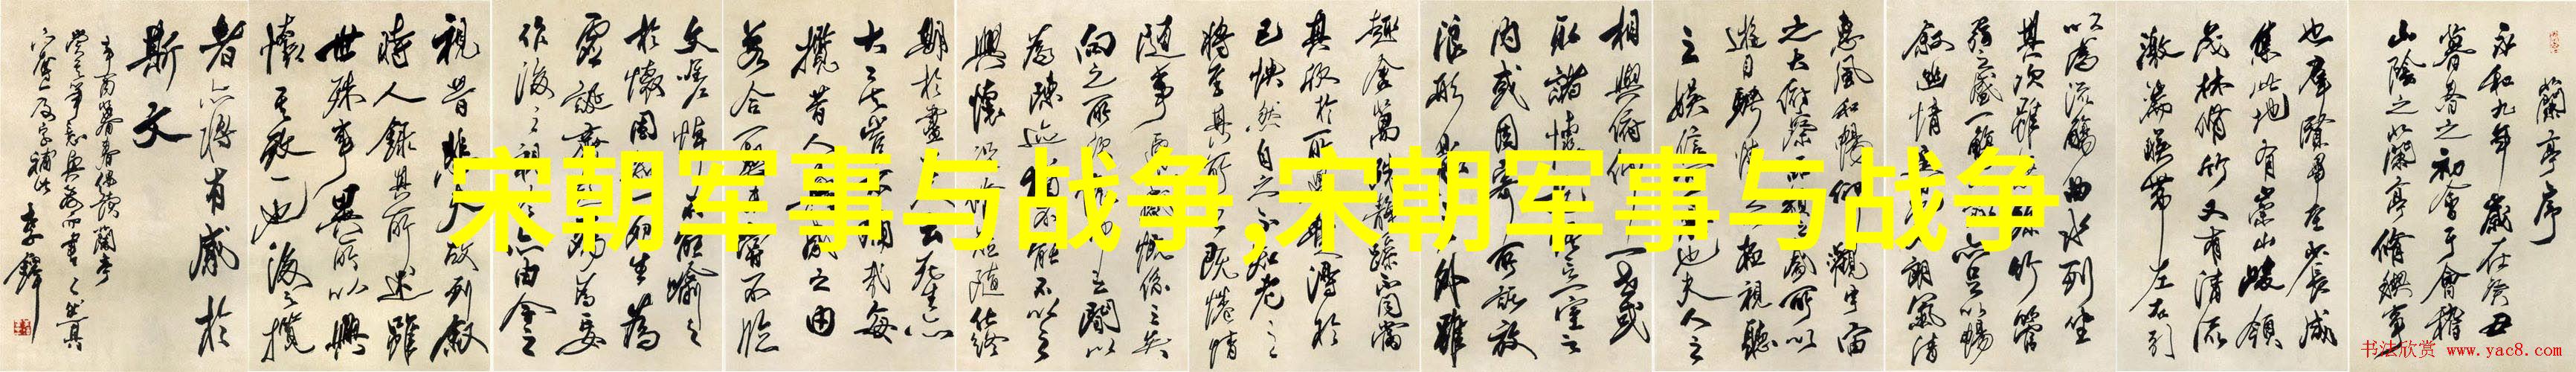 蘭亭序
永和九年歲在癸丑
暮春之初會于會稽
山陰之蘭亭脩禊事
也羣賢畢至少長咸
集此地有崇山峻領
茂林脩竹又有清流
激湍暎帶左右引
以為流觴曲水列坐
其次雖竹管
之盛一觴亦足以暢
敘幽情是朗氣清
惠風和暢仰觀宇宙
之大俯察品類之盛所以
遊目騁懷足以極視聽
之娛信可也夫人之
相與俯仰一世或
取諸懷一室之
內或因寄所託放
浪形外雖
趣舍萬殊靜躁不同當
其欣於所遇得於
己快然自足不知老之
將至及其所之既惓情
隨事遷感慨係之矣
向之所欣之間以
為陳迹猶不能不以之
興懷況脩短隨化終
期於盡人云死生亦
大矣豈不痛哉每
攬昔人興感之由
若合一契未嘗不臨
文嗟悼不能喻之
於懷固知一死生為
虛誕齊殤為妄
作後之視今亦由今之
視昔悲夫故列敘
時人錄其所述雖
世殊事異所以興
懷其致一也後之攬
者亦將有感於
斯文
李鐸
宋朝军事与战争,宋朝军事与战争
书法欣赏 www.yac8.com